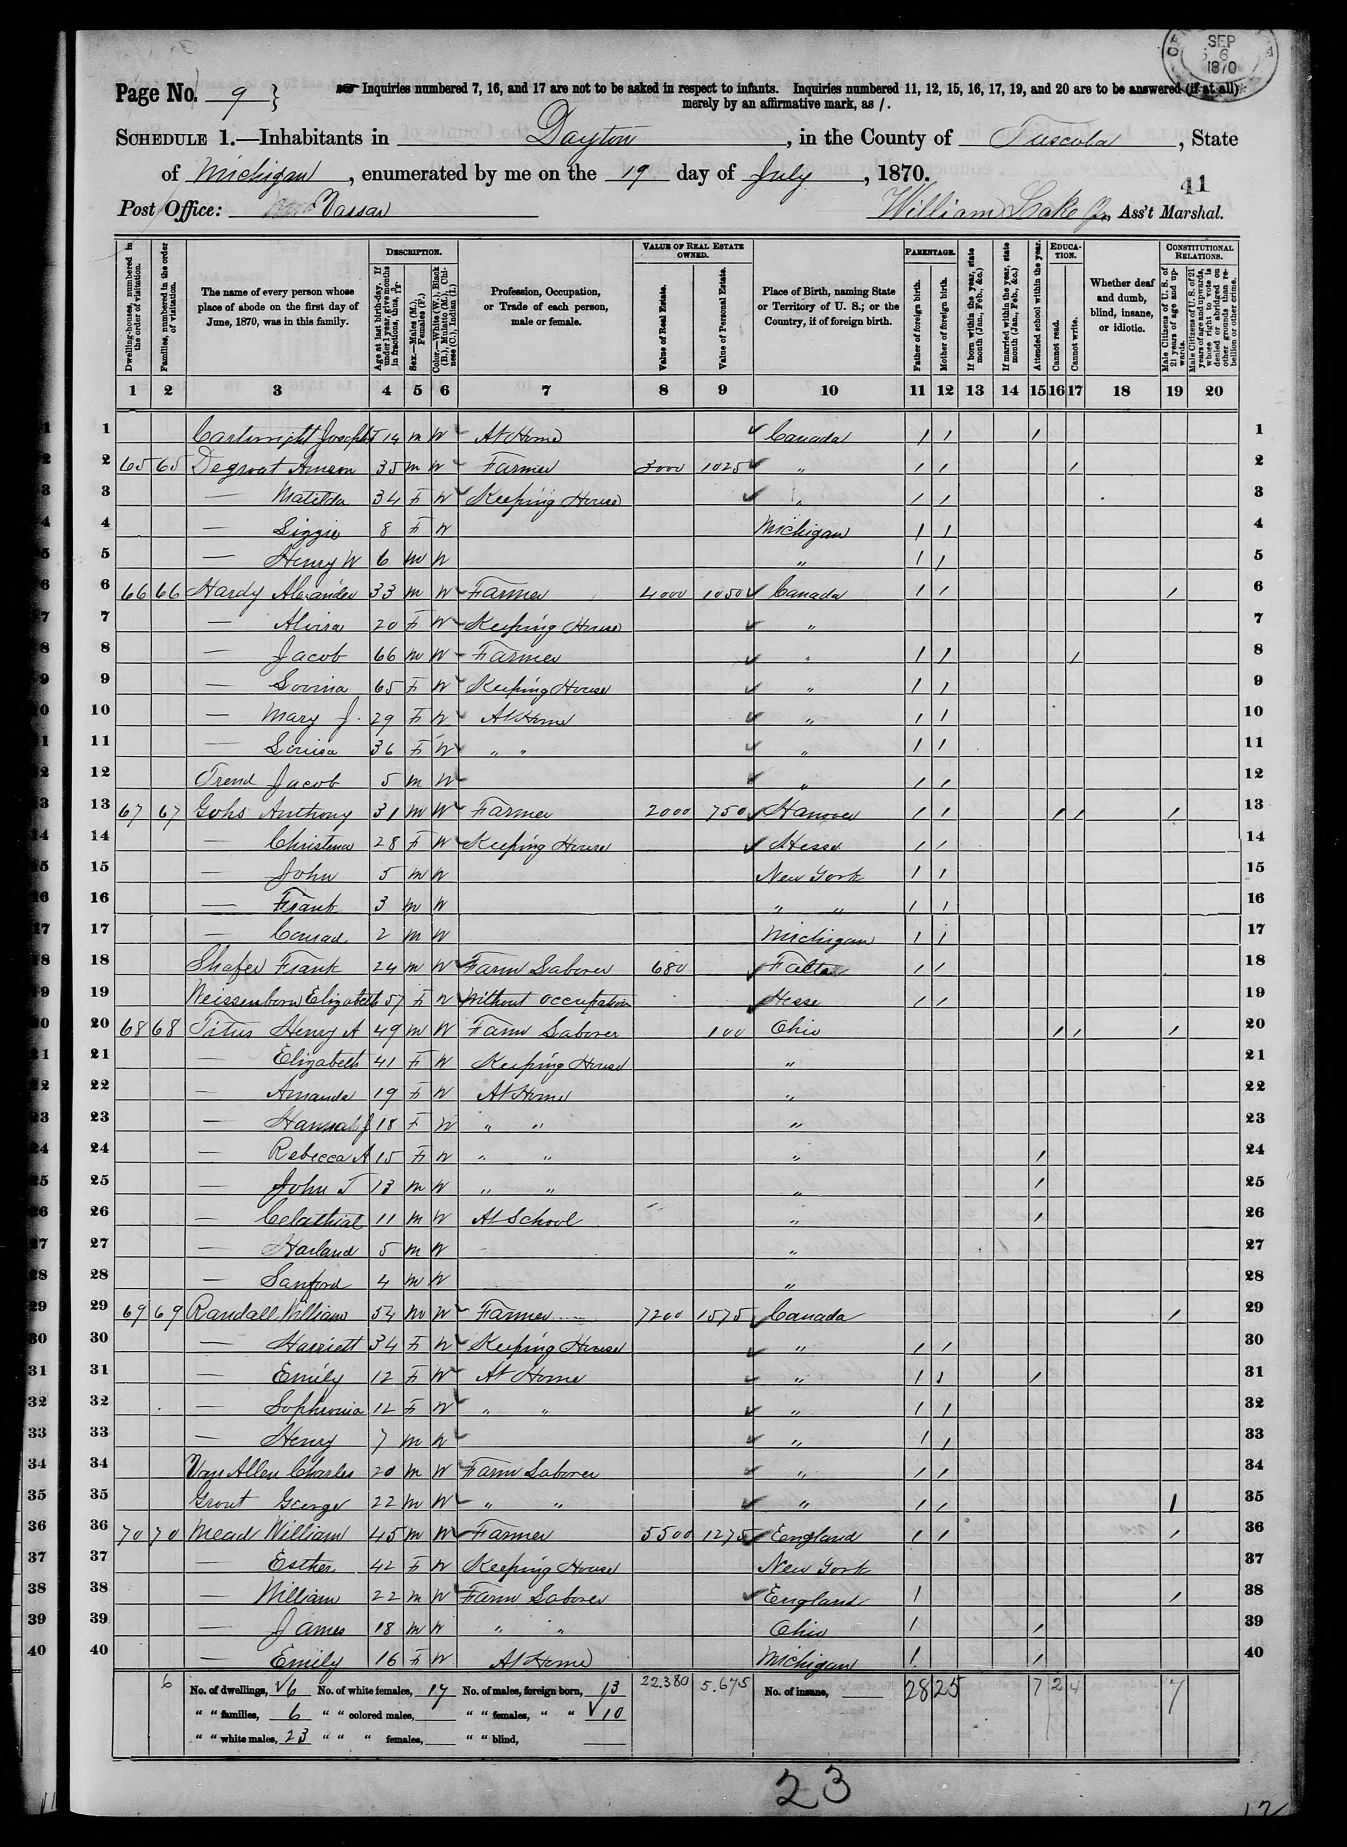 SEP
6
1870
Page No. 9 }
Inquiries numbered 7, 16, and 17 are not to be asked in respect to infants. Inquiries numbered 11, 12, 15, 16, 17, 19, and 20 are to be answered (if at all)
merely by an affirmative mark, as /.
SCHEDULE 1.—Inhabitants in Dayton, in the County of Tuscola, State
of Michigan, enumerated by me on the 19 day of July, 1870.
41
Post Office: Vassar William Lake Jr., Ass't Marshal.
Dwelling-houses, numbered in the order of visitation.
Families, numbered in the order of visitation.
The name of every person whose place of abode on the first day of June, 1870, was in this family.
DESCRIPTION.
Age at last birth-day. If under 1 year, give months in fractions, thus, 3/12.
Sex.—Males (M.), Females (F.)
Color.—White (W.), Black (B.), Mulatto (M.), Chinese (C.), Indian (I.)
Profession, Occupation, or Trade of each person, male or female.
VALUE OF REAL ESTATE OWNED.
Value of Real Estate.
Value of Personal Estate.
Place of Birth, naming State or Territory of U. S.; or the Country, if of foreign birth.
PARENTAGE.
Father of foreign birth.
Mother of foreign birth.
If born within the year, state month (Jan., Feb., &c.)
If married within the year, state month (Jan., Feb., &c.)
Attended school within the year.
EDUCATION.
Cannot read.
Cannot write.
Whether deaf and dumb, blind, insane, or idiotic.
CONSTITUTIONAL RELATIONS.
Male Citizens of U. S. of 21 years of age and upwards.
Male Citizens of U. S. of 21 years of age and upwards, whose right to vote is denied or abridged on other grounds than rebellion or other crime.
1 2 3 4 5 6 7 8 9 10 11 12 13 14 15 16 17 18 19 20
1 Cartwright Joseph T 14 M W At Home Canada / / / 1
2 65 65 Degroat Amson 35 M W Farmer 3000 1025 " / / / 2
3 — Matilda 34 F W Keeping House " / / 3
4 — Lizzie 8 F W Michigan / / 4
5 — Henry W 6 M W " / / 5
6 66 66 Hardy Alexander 33 M W Farmer 4000 1050 Canada / / / 6
7 — Alvira 20 F W Keeping House " 7
8 — Jacob 66 M W Farmer " / / / 8
9 — Lovina 65 F W Keeping House " / / 9
10 — Mary J. 29 F W At Home " / / 10
11 — Louisa 36 F W " " " / / 11
12 Trend Jacob 5 M W " / / 12
13 67 67 Gohs Anthony 31 M W Farmer 2000 750 Hanover / / / / / 13
14 — Christena 28 F W Keeping House Hesse / / 14
15 — John 5 M W New York / / 15
16 — Frank 3 M W " " / / 16
17 — Conrad 2 M W Michigan / / 17
18 Shafer Frank 24 M W Farm Laborer 680 / / 18
19 Weissenborn Elizabeth 57 F W Without occupation Hesse / / 19
20 68 68 Titus Henry A 49 M W Farm Laborer 100 Ohio / / / 20
21 — Elizabeth 41 F W Keeping House " 21
22 — Amanda 19 F W At Home " 22
23 — Hannah J 18 F W " " " 23
24 — Rebecca A 15 F W " " " / 24
25 — John T 13 M W " " " / 25
26 — Celathial 11 M W At School " / 26
27 — Harland 5 M W " 27
28 — Sanford 4 M W " 28
29 69 69 Randall William 54 M W Farmer 7200 1575 Canada / 29
30 — Harriett 34 F W Keeping House " / / 30
31 — Emily 12 F W At Home " / / / 31
32 — Sophronia 12 F W " " " / / 32
33 — Henry 7 M W " / / 33
34 Van Allen Charles 20 M W Farm Laborer " / / 34
35 Grout George 22 M W " " " / / / 35
36 70 70 Mead William 45 M W Farmer 5500 1275 England / / / 36
37 — Esther 42 F W Keeping House New York 37
38 — William 22 M W Farm Laborer England / / 38
39 — James 18 M W " " Ohio / / 39
40 — Emily 16 F W At Home Michigan / / 40
6 No. of dwellings, 6 No. of white females, 17 No. of males, foreign born, 13 22.380 5.675 No. of insane, 28 25 7 2 4 7
" " families, 6 " " colored males, " " females, " " 10
" " white males, 23 " " " females, " " blind,
23
12